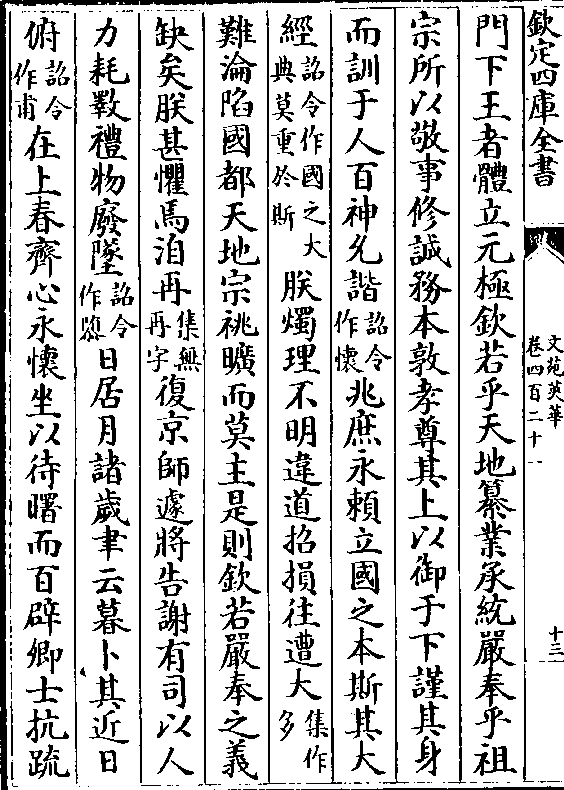 欽定四庫全書
文苑英華
卷四百二十一
十三
門下王者體立元極欽若乎天地纂業承統嚴奉乎祖
宗所以敬事修誠務本敦孝尊其上以御于下謹其身
而訓于人百神允諧詔令作懷兆庶永賴立國之本斯其大
經詔令作國之大典莫重於斯朕燭理不明違道招損往遭大集作多
難淪陷國都天地宗祧曠而莫主是則欽若嚴奉之義
缺矣朕甚懼焉洎再集無再字復京師遽將告謝有司以人
力耗斁禮物廢墜詔令作隳日居月諸歲聿云暮卜其近日
俯詔令作甫在上春齊心永懷坐以待曙而百辟卿士抗疏